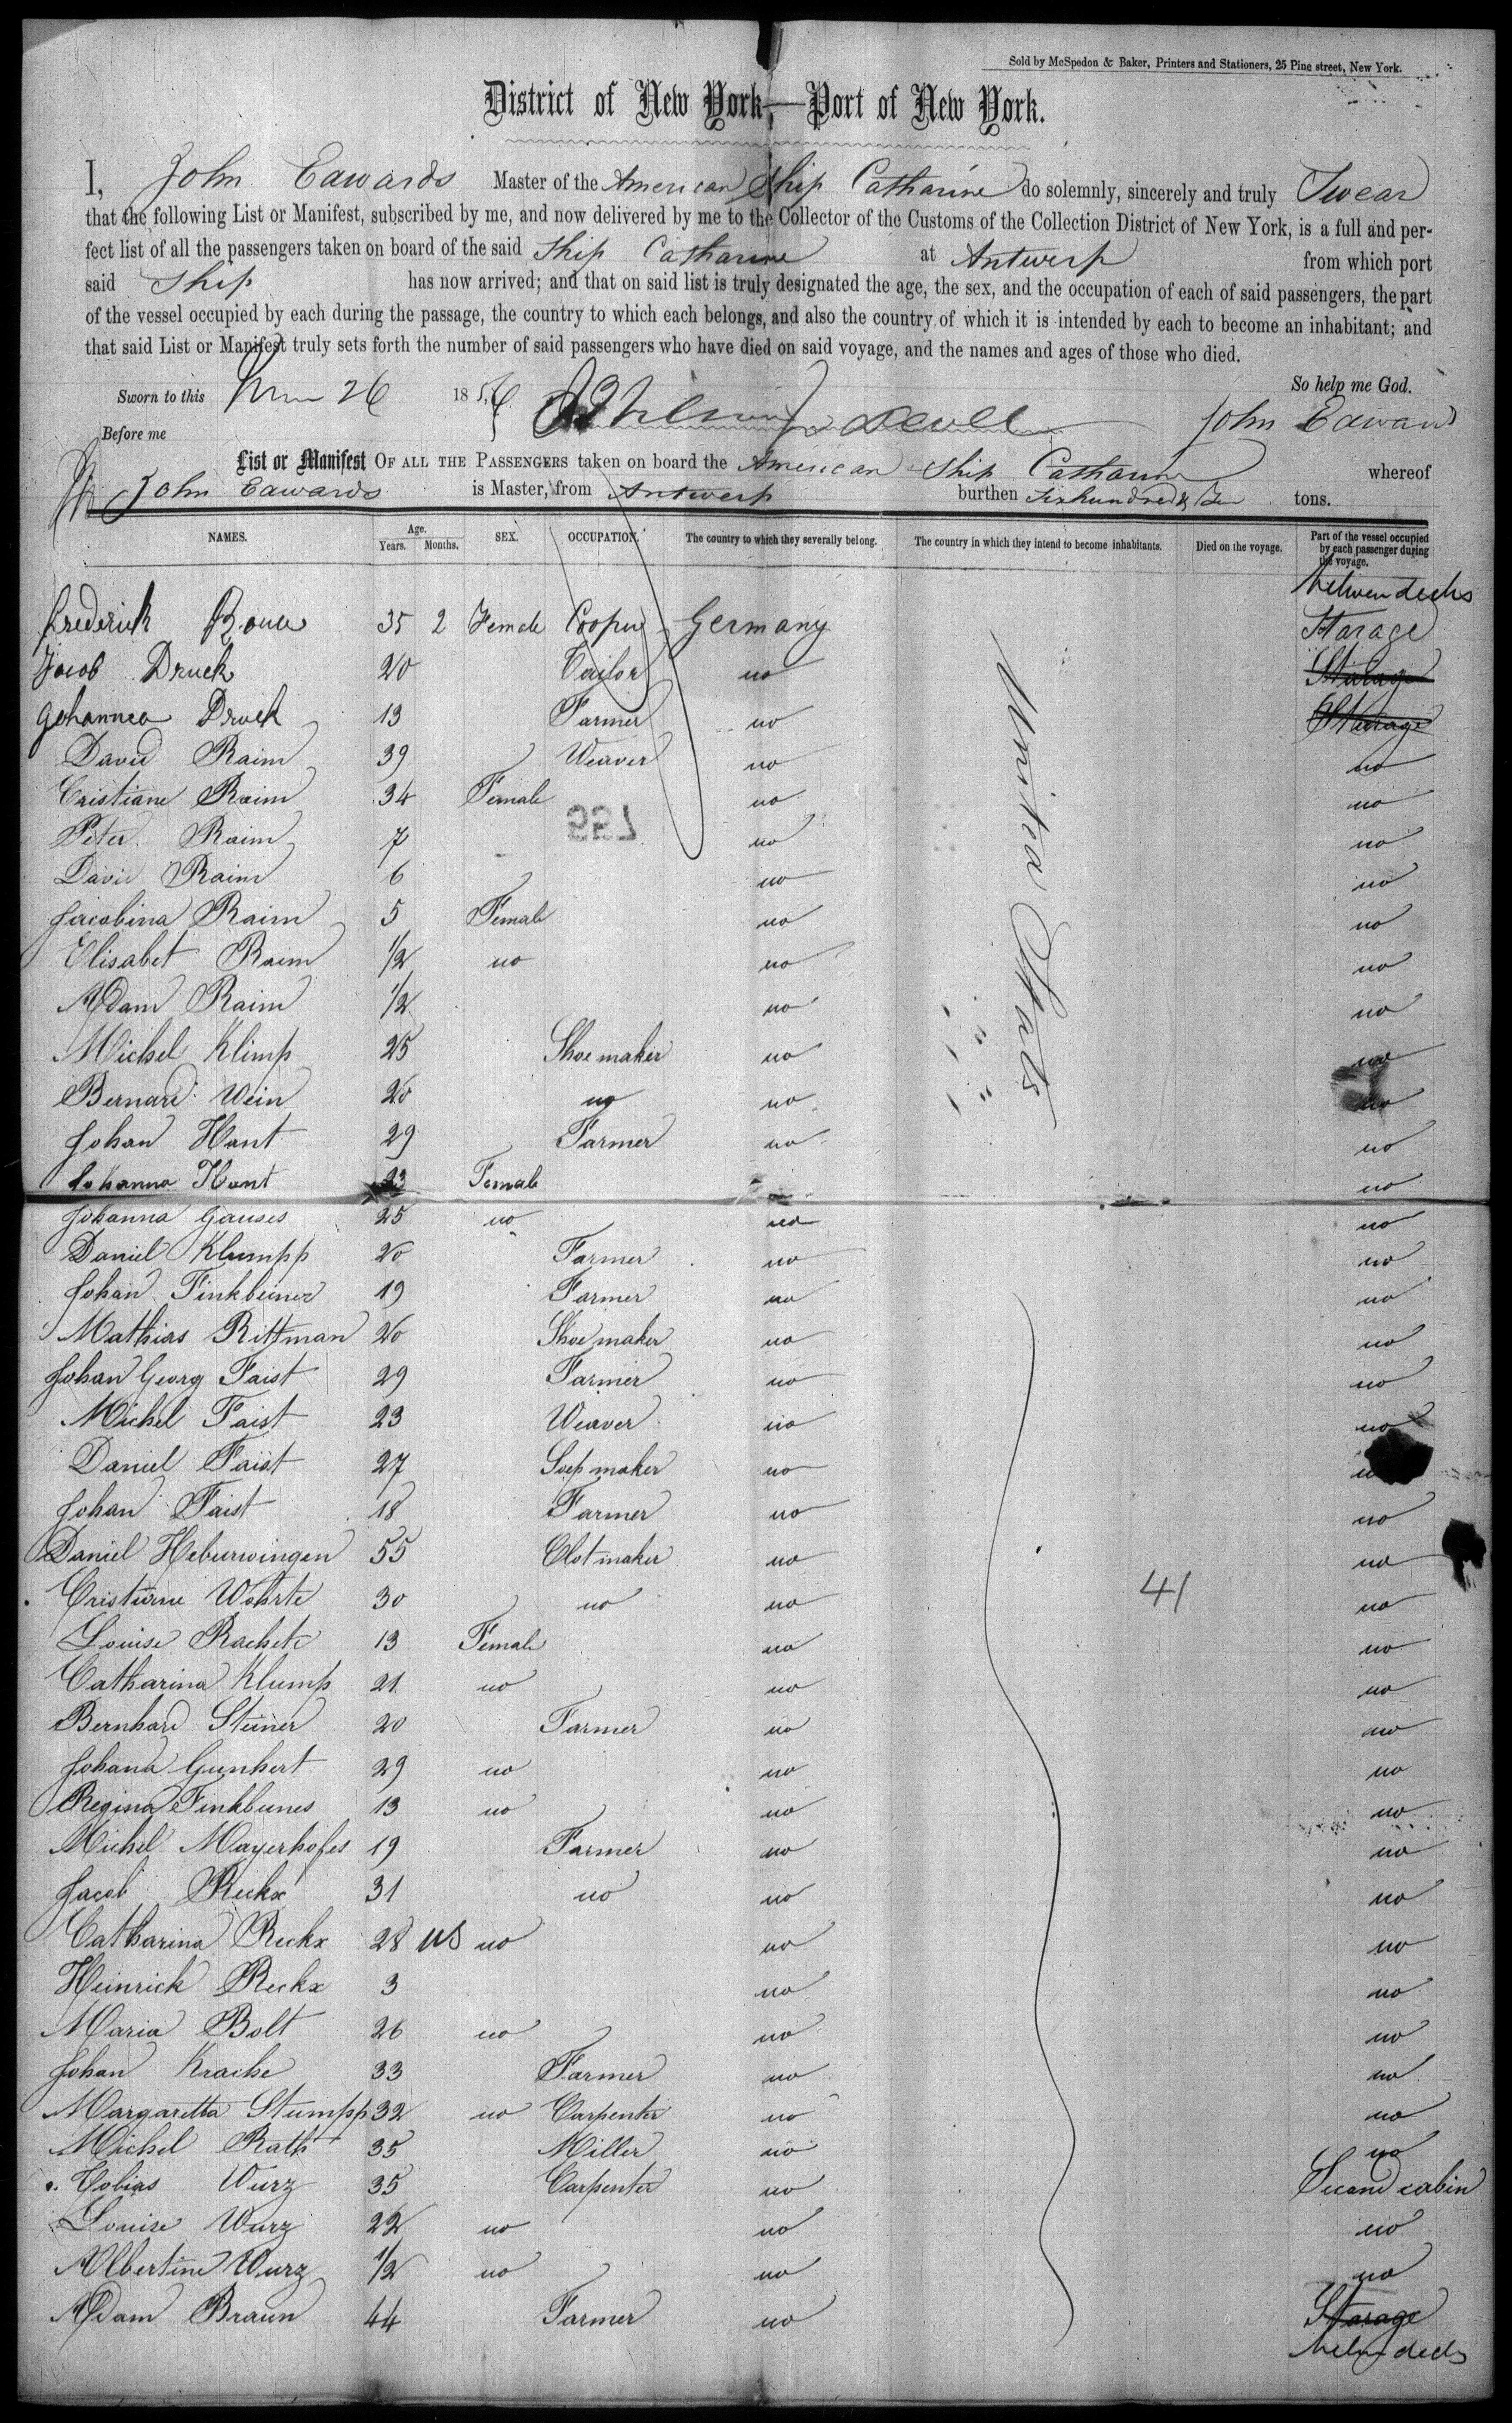 Sold by McSpedon & Baker, Printers and Stationers, 25 Pine street, New York.
District of New York,—Port of New York.
I, John Edwards Master of the American Ship Catharine do solemnly, sincerely and truly Swear
that the following List or Manifest, subscribed by me, and now delivered by me to the Collector of the Customs of the Collection District of New York, is a full and per-
fect list of all the passengers taken on board of the said Ship Catharine at Antwerp from which port
said Ship has now arrived; and that on said list is truly designated the age, the sex, and the occupation of each of said passengers, the part
of the vessel occupied by each during the passage, the country to which each belongs, and also the country of which it is intended by each to become an inhabitant; and
that said List or Manifest truly sets forth the number of said passengers who have died on said voyage, and the names and ages of those who died.
Sworn to this 26 1856 So help me God.
Before me John Edwards
List or Manifest OF ALL THE PASSENGERS taken on board the American Ship Catharine whereof
John Edwards is Master, from Antwerp burthen Six hundred & Ten tons.
NAMES. Age. Years. Months. SEX. OCCUPATION. The country to which they severally belong. The country in which they intend to become inhabitants. Died on the voyage. Part of the vessel occupied by each passenger during the voyage.
between decks
Frederick 35 2 Female Cooper Germany United States Starage
Jacob Druck 20 Tailor no Starage
Johannea Druck 13 Farmer no Starage
David Raim 39 Weaver no no
Cristiane Raim 34 Female no no
Peter Raim 7 no no
David Raim 6 no no
Jacobina Raim 5 Female no no
Elisabet Raim 1/2 no no no
Adam Raim 1/2 no no
Michel Klimp 25 Shoe maker no no
Bernard Wein 20 no no no
Johan Hant 29 Farmer no no
Johanna Hant 23 Female no no
Johanna Gauses 25 no no no
Daniel Klumpp 20 Farmer no no
Johan Finkbeiner 19 Farmer no no
Mathias Rittman 20 Shoe maker no no
Johan Georg Faist 29 Farmer no no
Michel Faist 23 Weaver no no
Daniel Faist 27 Soep maker no no
Johan Faist 18 Farmer no no
Daniel Heburwingen 55 Clot maker no no
Cristiane Wohrte 30 no no 41 no
Louise Rachete 13 Female no no
Catharina Klump 21 no no no
Bernhard Steiner 20 Farmer no no
Johana Gunhert 29 no no no
Regina Finkbunes 13 no no no
Michel Mayerhofes 19 Farmer no no
Jacob Reckx 31 no no no
Catharina Reckx 28 no no no
Heinrick Reckx 3 no no
Maria Bolt 26 no no no
Johan Krache 33 Farmer no no
Margaretta Stumpp 32 no Carpenter no no
Michel Rath 35 Miller no no
Tobias Wurz 35 Carpenter no Second cabin
Louise Wurz 22 no no no
Albertine Wurz 1/2 no no no
Adam Braun 44 Farmer no Starage